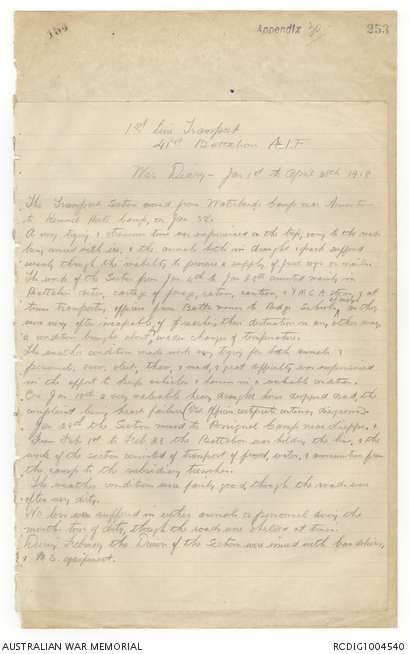 164
Appendix 30
253
1st Line Transport
41st Battalion A.I.F.
War Diary - Jan 1st to April 30th 1918
The Transport Section moved from Waterlands Camp near
to Kennel Huts Camp, on Jan
A very trying & strenuous time was experienced on the trip, owing to the roads
being covered with ice, & the animals both in draught & pack suffered
severely though the inability to procure a supply of frost cogs or nails.
The work of the Section from Jan 6th to Jan 28th consisted mainly in
Battalion duties, cartage of forage, rations, canteen, & Y.M.C.A. stores, & at
times transporting officers from Battn to Schools, the
were very often incapable of reaching their destination on any other way,
a condition brought about by sudden change of temperature.
The weather conditions made work very trying for both animals &
personnel, snow, sleet, thaw, & mud, & great difficulty was experienced
in the effort to keep vehicles & harness in a workable condition.
On Jan 18th a very valuable heavy draught horse dropped dead, the
complaint being heart failure (Vet. Officers certificate
Jan 29th the Section moved to Camp near Nieppe, &
from Feb 1st to Feb the Battalion was holding the line, & the
work of the section consisted of transport of food, water, & ammunition from
the camp to the subsidiary trenches.
The weather conditions were fairly good, though the roads were
often very dirty.
No loss was suffered in either animals or personnel during the
months tour of duty, though the roads were shelled at times.
During February the Drivers of the Section were issued with bandoliers,
& equipment.
AUSTRALIAN WAR MEMORIAL
RCDIG1004540